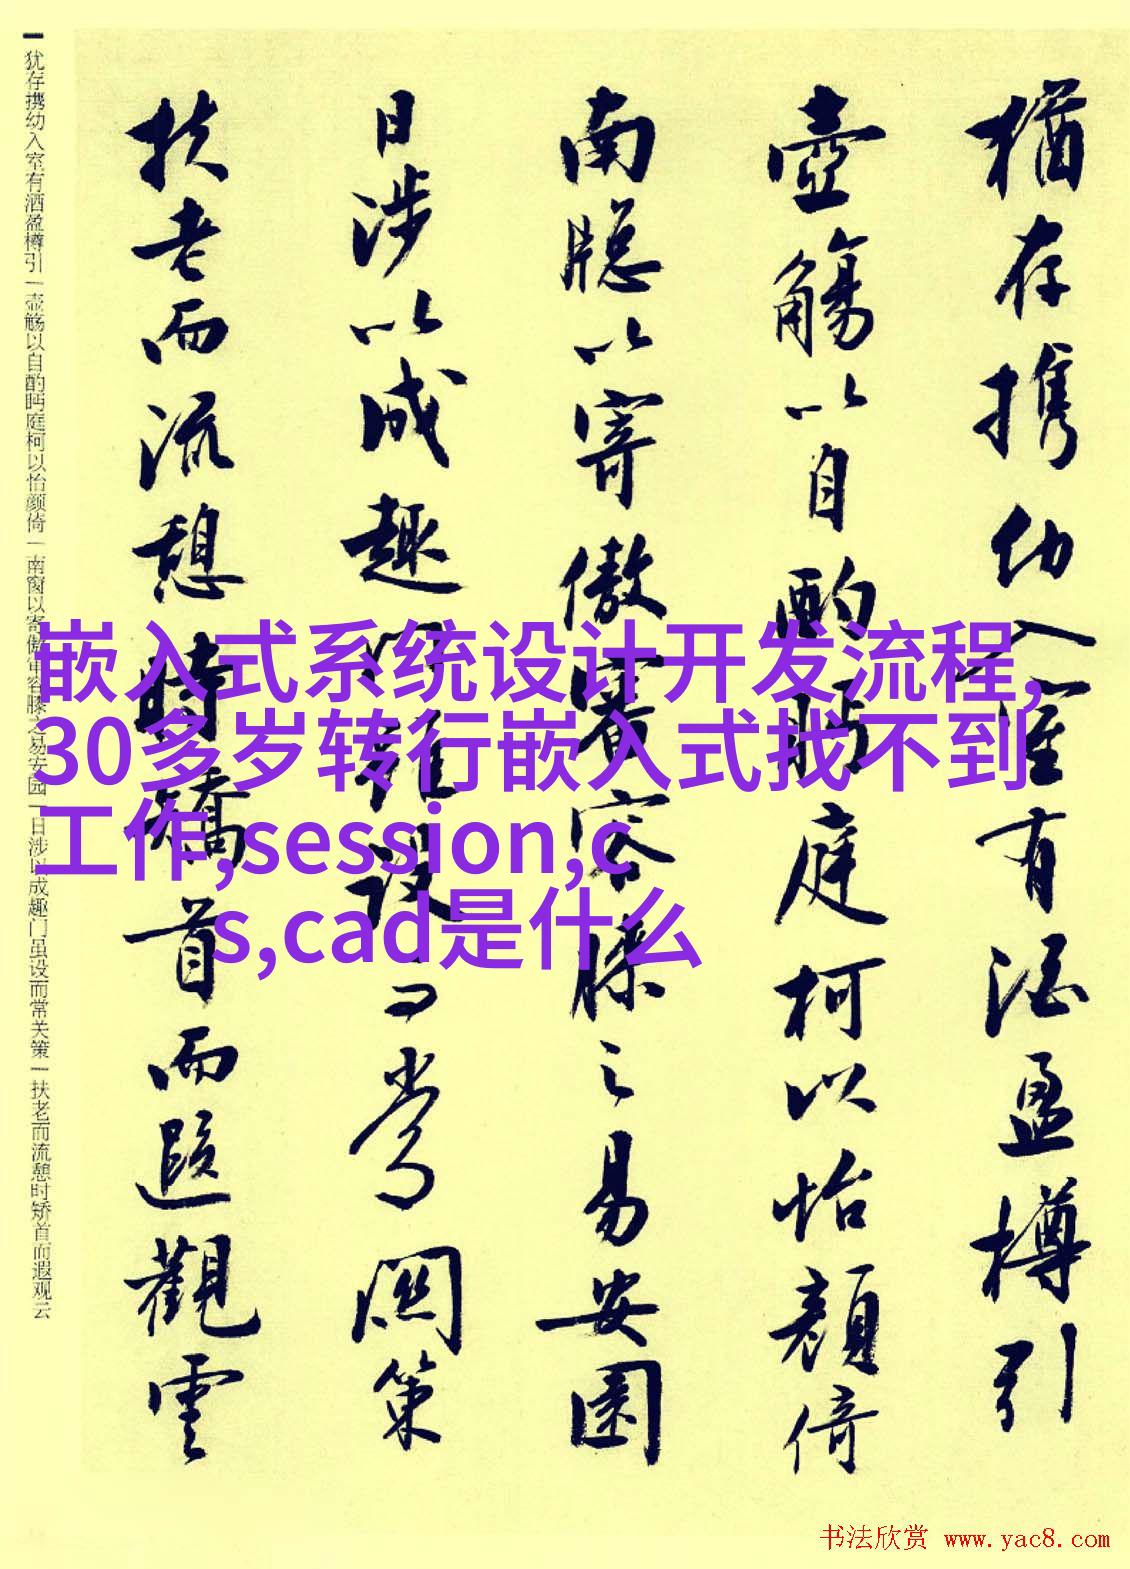 猶存携幼入室有酒盈樽引
壺觴以自酌眄庭柯以怡顔倚
南牕以寄傲審容膝之易安園
日涉以成趣門雖設而常關策
扶老而流憩時矯首而遐觀雲
犹存携幼入室有洒盈樽引一壶觞以自酌眄庭柯以怡颜倚一南窗以寄傲审容膝之易安园一日涉以成趣门虽设而常关策一扶老而流憩时矫首而遐观云
嵌入式系统设计开发流程,
30多岁转行嵌入式找不到
工作,session,c
s,cad是什么
书法欣赏 www.yac8.com